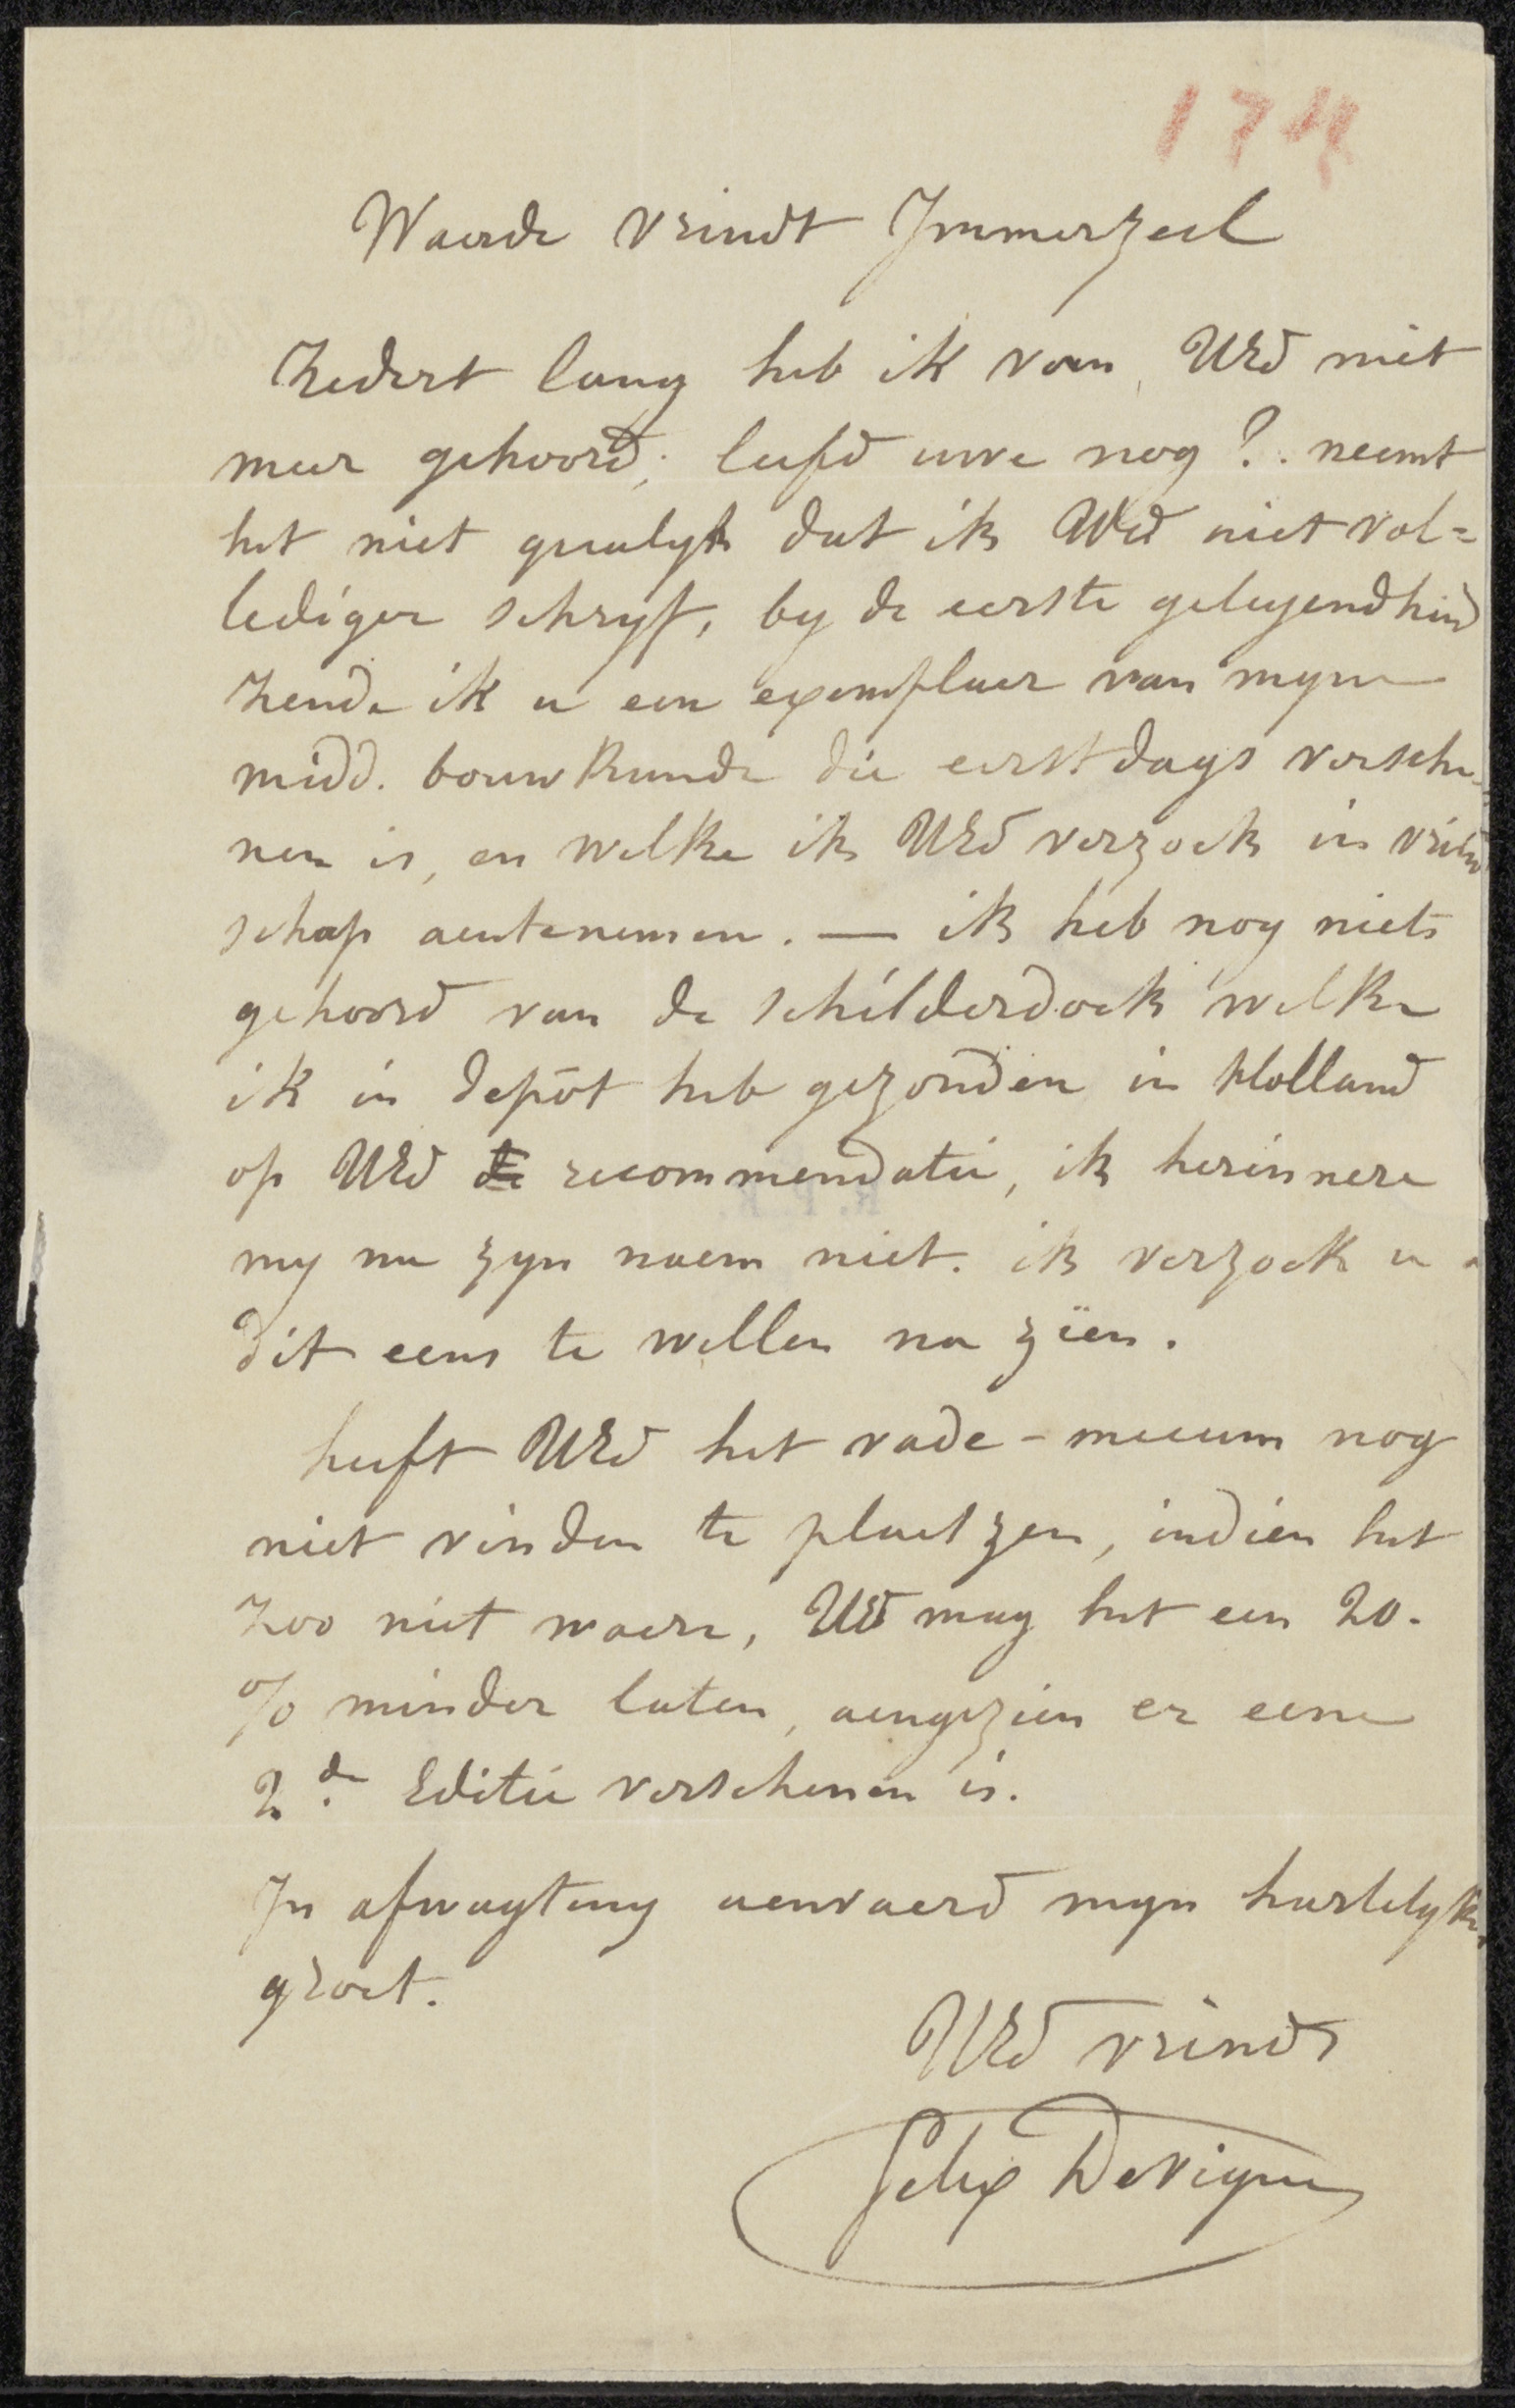 174
Waerde vrindt Immerzeel
Zedert lang heb ik van UEd niet
meer gehoord; leefd uwe nog ? neemt
het niet qualyk dat ik UEd niet vol=
lediger schryf, by de eerste gelegendheid
zende ik u een exemplaer van myne
midd. bouwkunde die eerstdags versche-
nen is, en welke ik UEd verzoek in vriend
schap aentenemen. — ik heb nog niets
gehoord van de schilderdoek welke
ik in depôt heb gezonden in Holland
op UEd de recommendatie, ik herinnere
my nu zyn naem niet. ik verzoek u
dit eens te willen na zïen.
heeft UEd het vade-mecum nog
niet vinden te plaetzen, indien het
zoo niet waere, UEd mag het een 20.
% minder laten, aengezien er eene
2de Editie verschenen is.
In afwagting aenvaerd myn hartelyke
groet.
UEd vrind
Felix Devigne